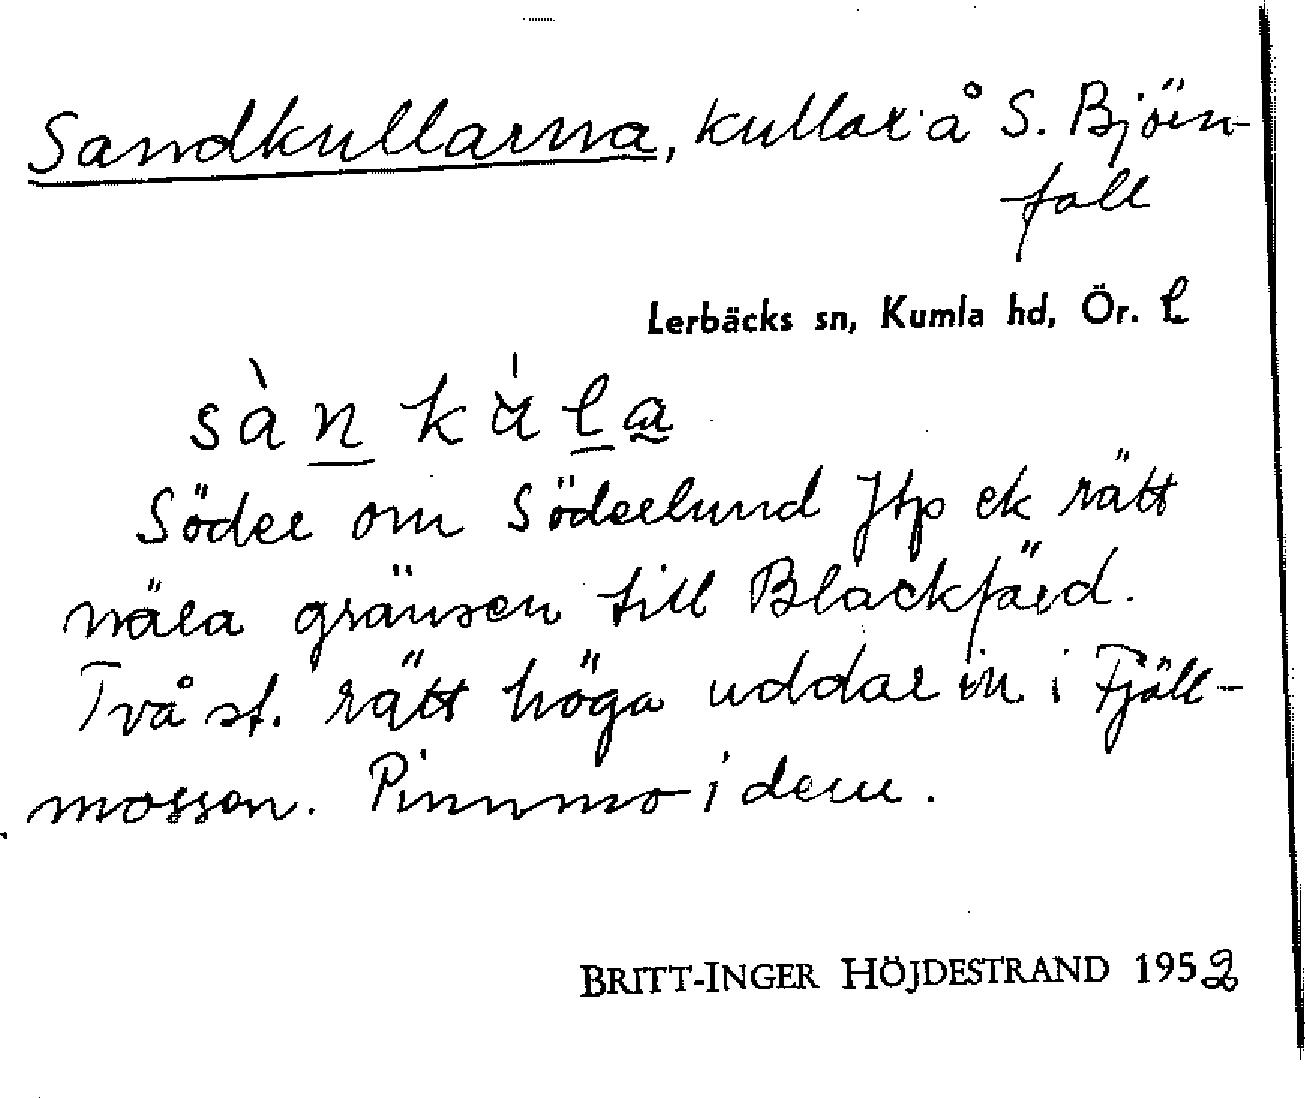 Sandkullarna, kullar å S. Björn-
fall
Lerbäcks sn, Kumla hd, Ör. l
sàn kùla
Söder om Söderlund Jtp ek rätt
nära gränsen till Blackfärd.
Två st. rätt höga uddar in i Fjäll-
mossen. Pinnmo i dem.
BRITT-INGER HÖJDESTRAND 1952